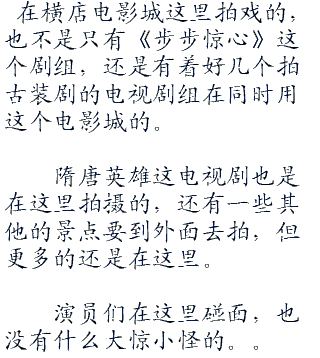 在横店电影城这里拍戏的，
也不是只有《步步惊心》这
个剧组，还是有着好几个拍
古装剧的电视剧组在同时用
这个电影城的。
隋唐英雄这电视剧也是
在这里拍摄的，还有一些其
他的景点要到外面去拍，但
更多的还是在这里。
演员们在这里碰面，也
没有什么大惊小怪的。。